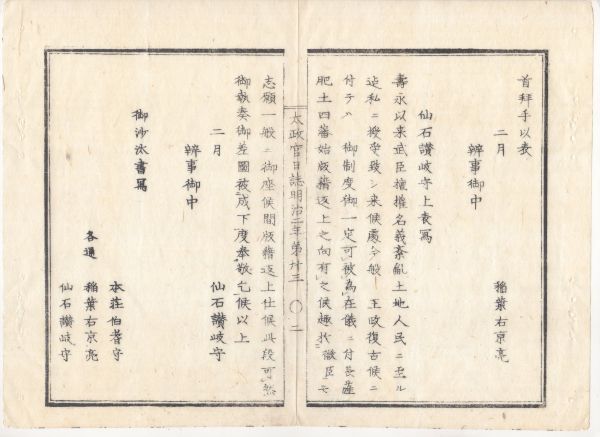 首拜手以表
二月　稲葉右京亮
辨事御中
仙石讃岐守上表寫
壽永以来武臣擅權名義紊亂土地人民ニ至ル
迠私ニ授受致シ来候處今般　王政復古候ニ
付テハ　御制度御一定可被為在儀ニ付長薩
肥土四藩始版籍返上之向有之候趣於微臣モ
太政官日誌明治二年第廿三　〇二
志願一般ニ御座候間版籍返上仕候此段可然
御執奏御差圖被成下度奉敬乞候以上
二月　仙石讃岐守
辨事御中
御沙汰書寫
本荘伯耆守
各通　稲葉右京亮
仙石讃岐守